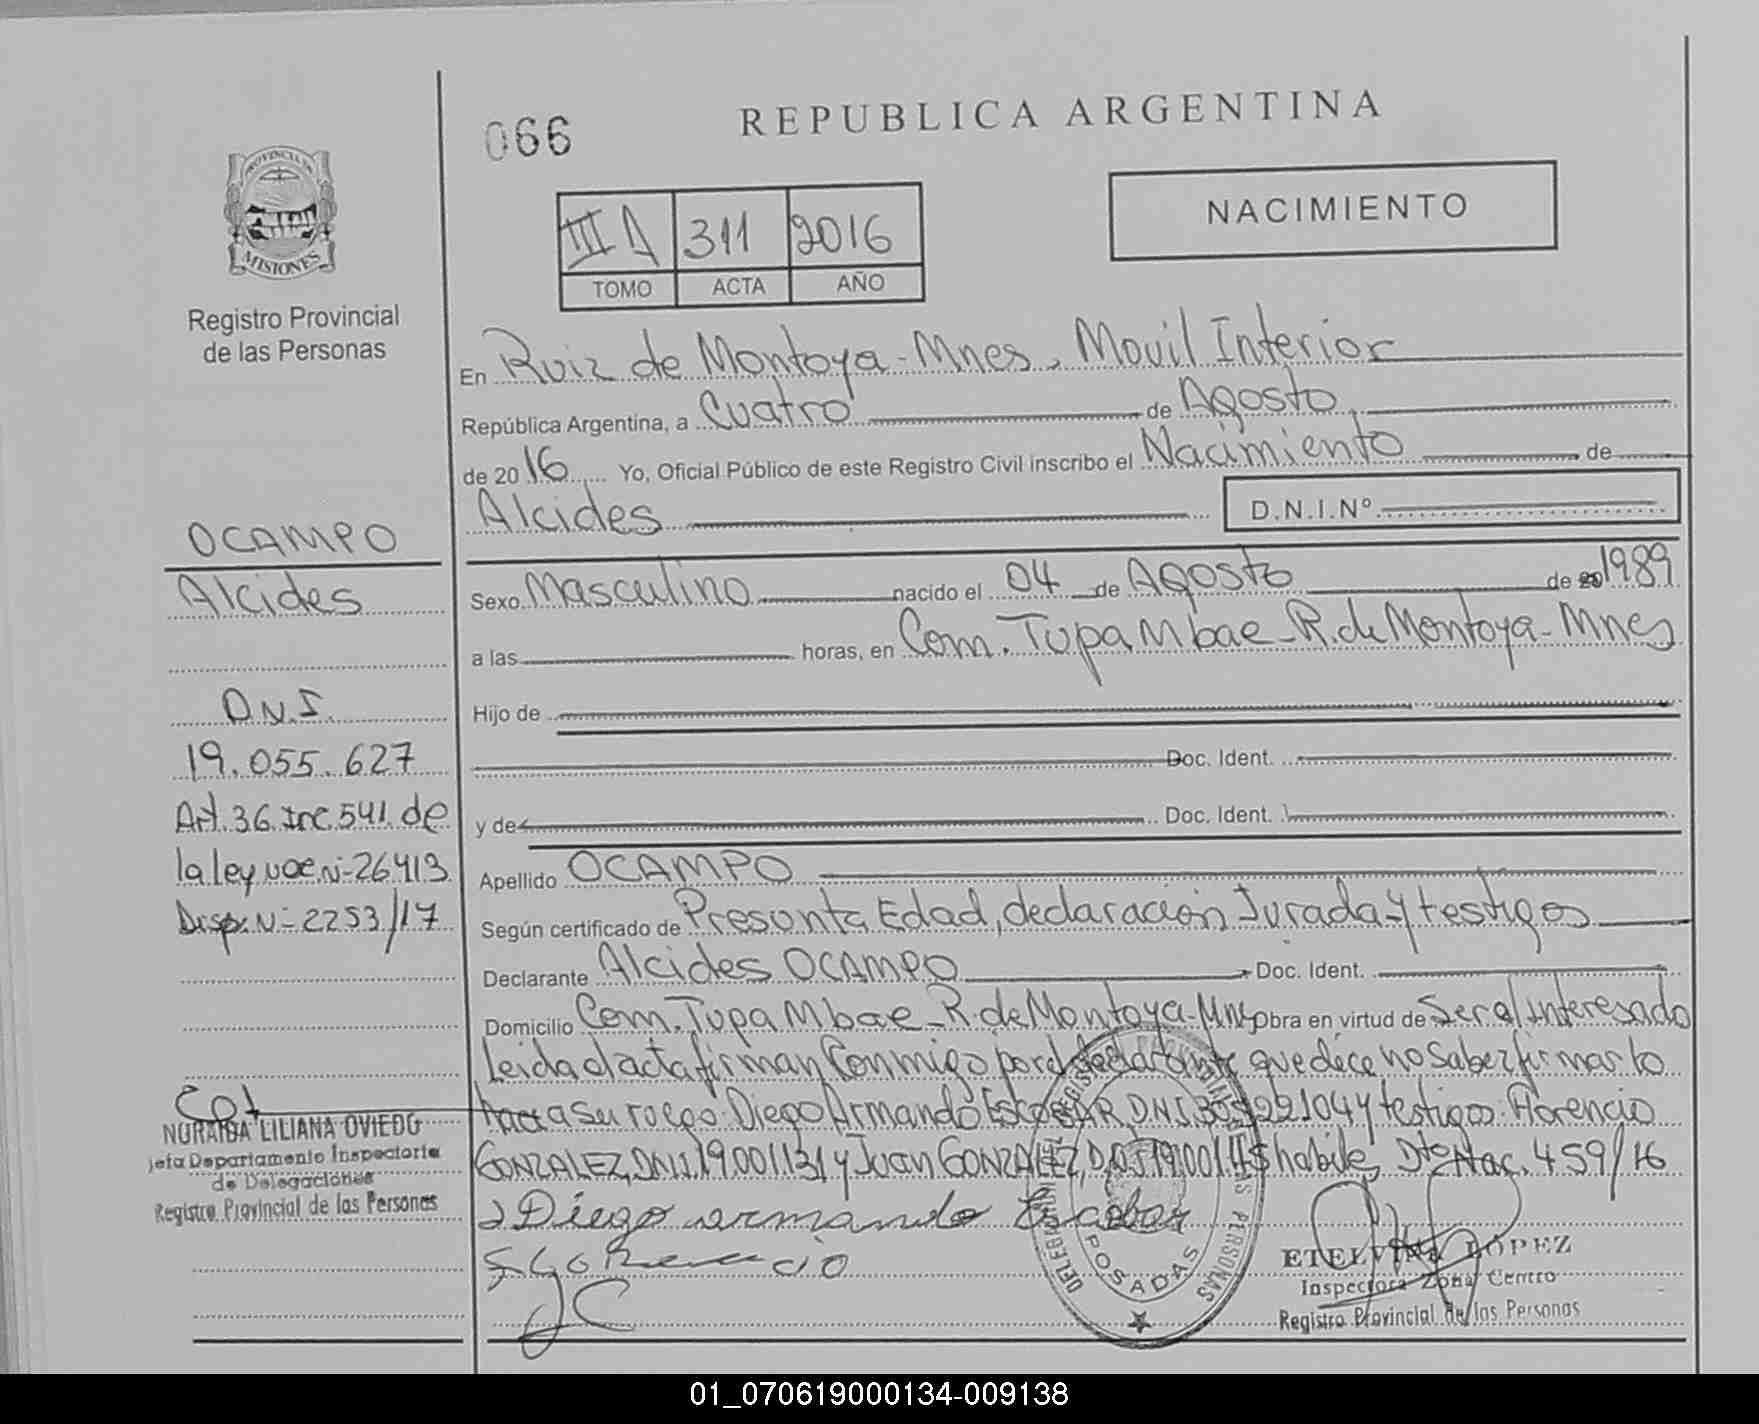 066
REPUBLICA ARGENTINA
PROVINCIA DE
MISIONES
Registro Provincial
de las Personas
III A 311 2016
TOMO ACTA AÑO
NACIMIENTO
En Ruiz de Montoya - Mnes, Movil Interior
República Argentina, a Cuatro de Agosto
de 2016 Yo, Oficial Público de este Registro Civil inscribo el Nacimiento de
Alcides D.N.I.Nº
Sexo Masculino nacido el 04 de Agosto de 20 1989
a las horas, en Com. Tupa Mbae - R. de Montoya - Mnes
Hijo de
Doc. Ident.
y de Doc. Ident.
Apellido OCAMPO
Según certificado de Presunta Edad, declaración Jurada y testigos
Declarante Alcides OCAMPO Doc. Ident.
Domicilio Com. Tupa Mbae - R. de Montoya - Mnes Obra en virtud de Ser el interesado
Leida el acta firman Conmigo por el declarante que dice no saber firmar lo
hace a su ruego: Diego Armando ESCOBAR, DNI 30522104 y testigos: Florencio
GONZALEZ, DNI 19.001.131 y Juan GONZALEZ, habiles, Dto Nac. 459/16
Diego armando Escobar
OCAMPO
Alcides
D.N.I.
19.055.627
Art. 36 Inc 541 de
la ley Nº 26413
Disp. N- 2253/17
NORAIDA LILIANA OVIEDO
Jefa Departamento Inspectoria
de Delegaciones
Registro Provincial de las Personas
POSADAS
ETELVINA LÓPEZ
Inspectora Zona Centro
Registro Provincial de las Personas
01_070619000134-009138